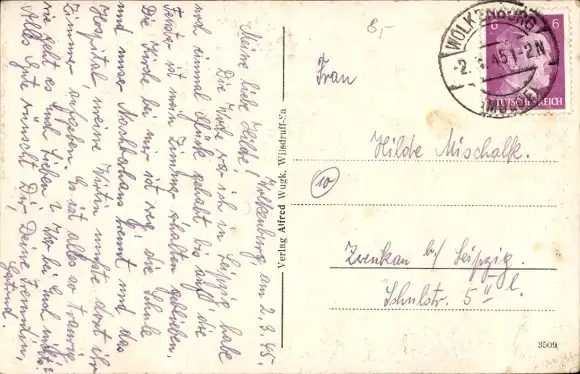 Wolkenburg am 2.3.45.
Meine liebe Hilde!
Die Woch war ich in Leipzig, habe
noch einmal Glück gehabt bis auf die
Fenster ist mein Zimmer erhalten geblieben.
Die Kirche bei mir ist weg, die Schule
und unser Nachbarhaus brennt und das
Hospital, meine Wirtin mußte dort ihr
Zimmer aufgeben. Es ist alles so traurig
wie geht es Euch Lieben? Ihr bei Euch
Alles Gute wünscht Dir Deine Freundin,
Gertrud.
Verlag Alfred Wugk, Wilsdruff-Sa
8,-
WOLKENBURG
-2.3.45 1-2N
(MULDE)
6 6
DEUTSCHES REICH
Frau
Hilde Mischalk.
10
Zwenkau b/ Leipzig.
Schulstr. 5 II l.
3509